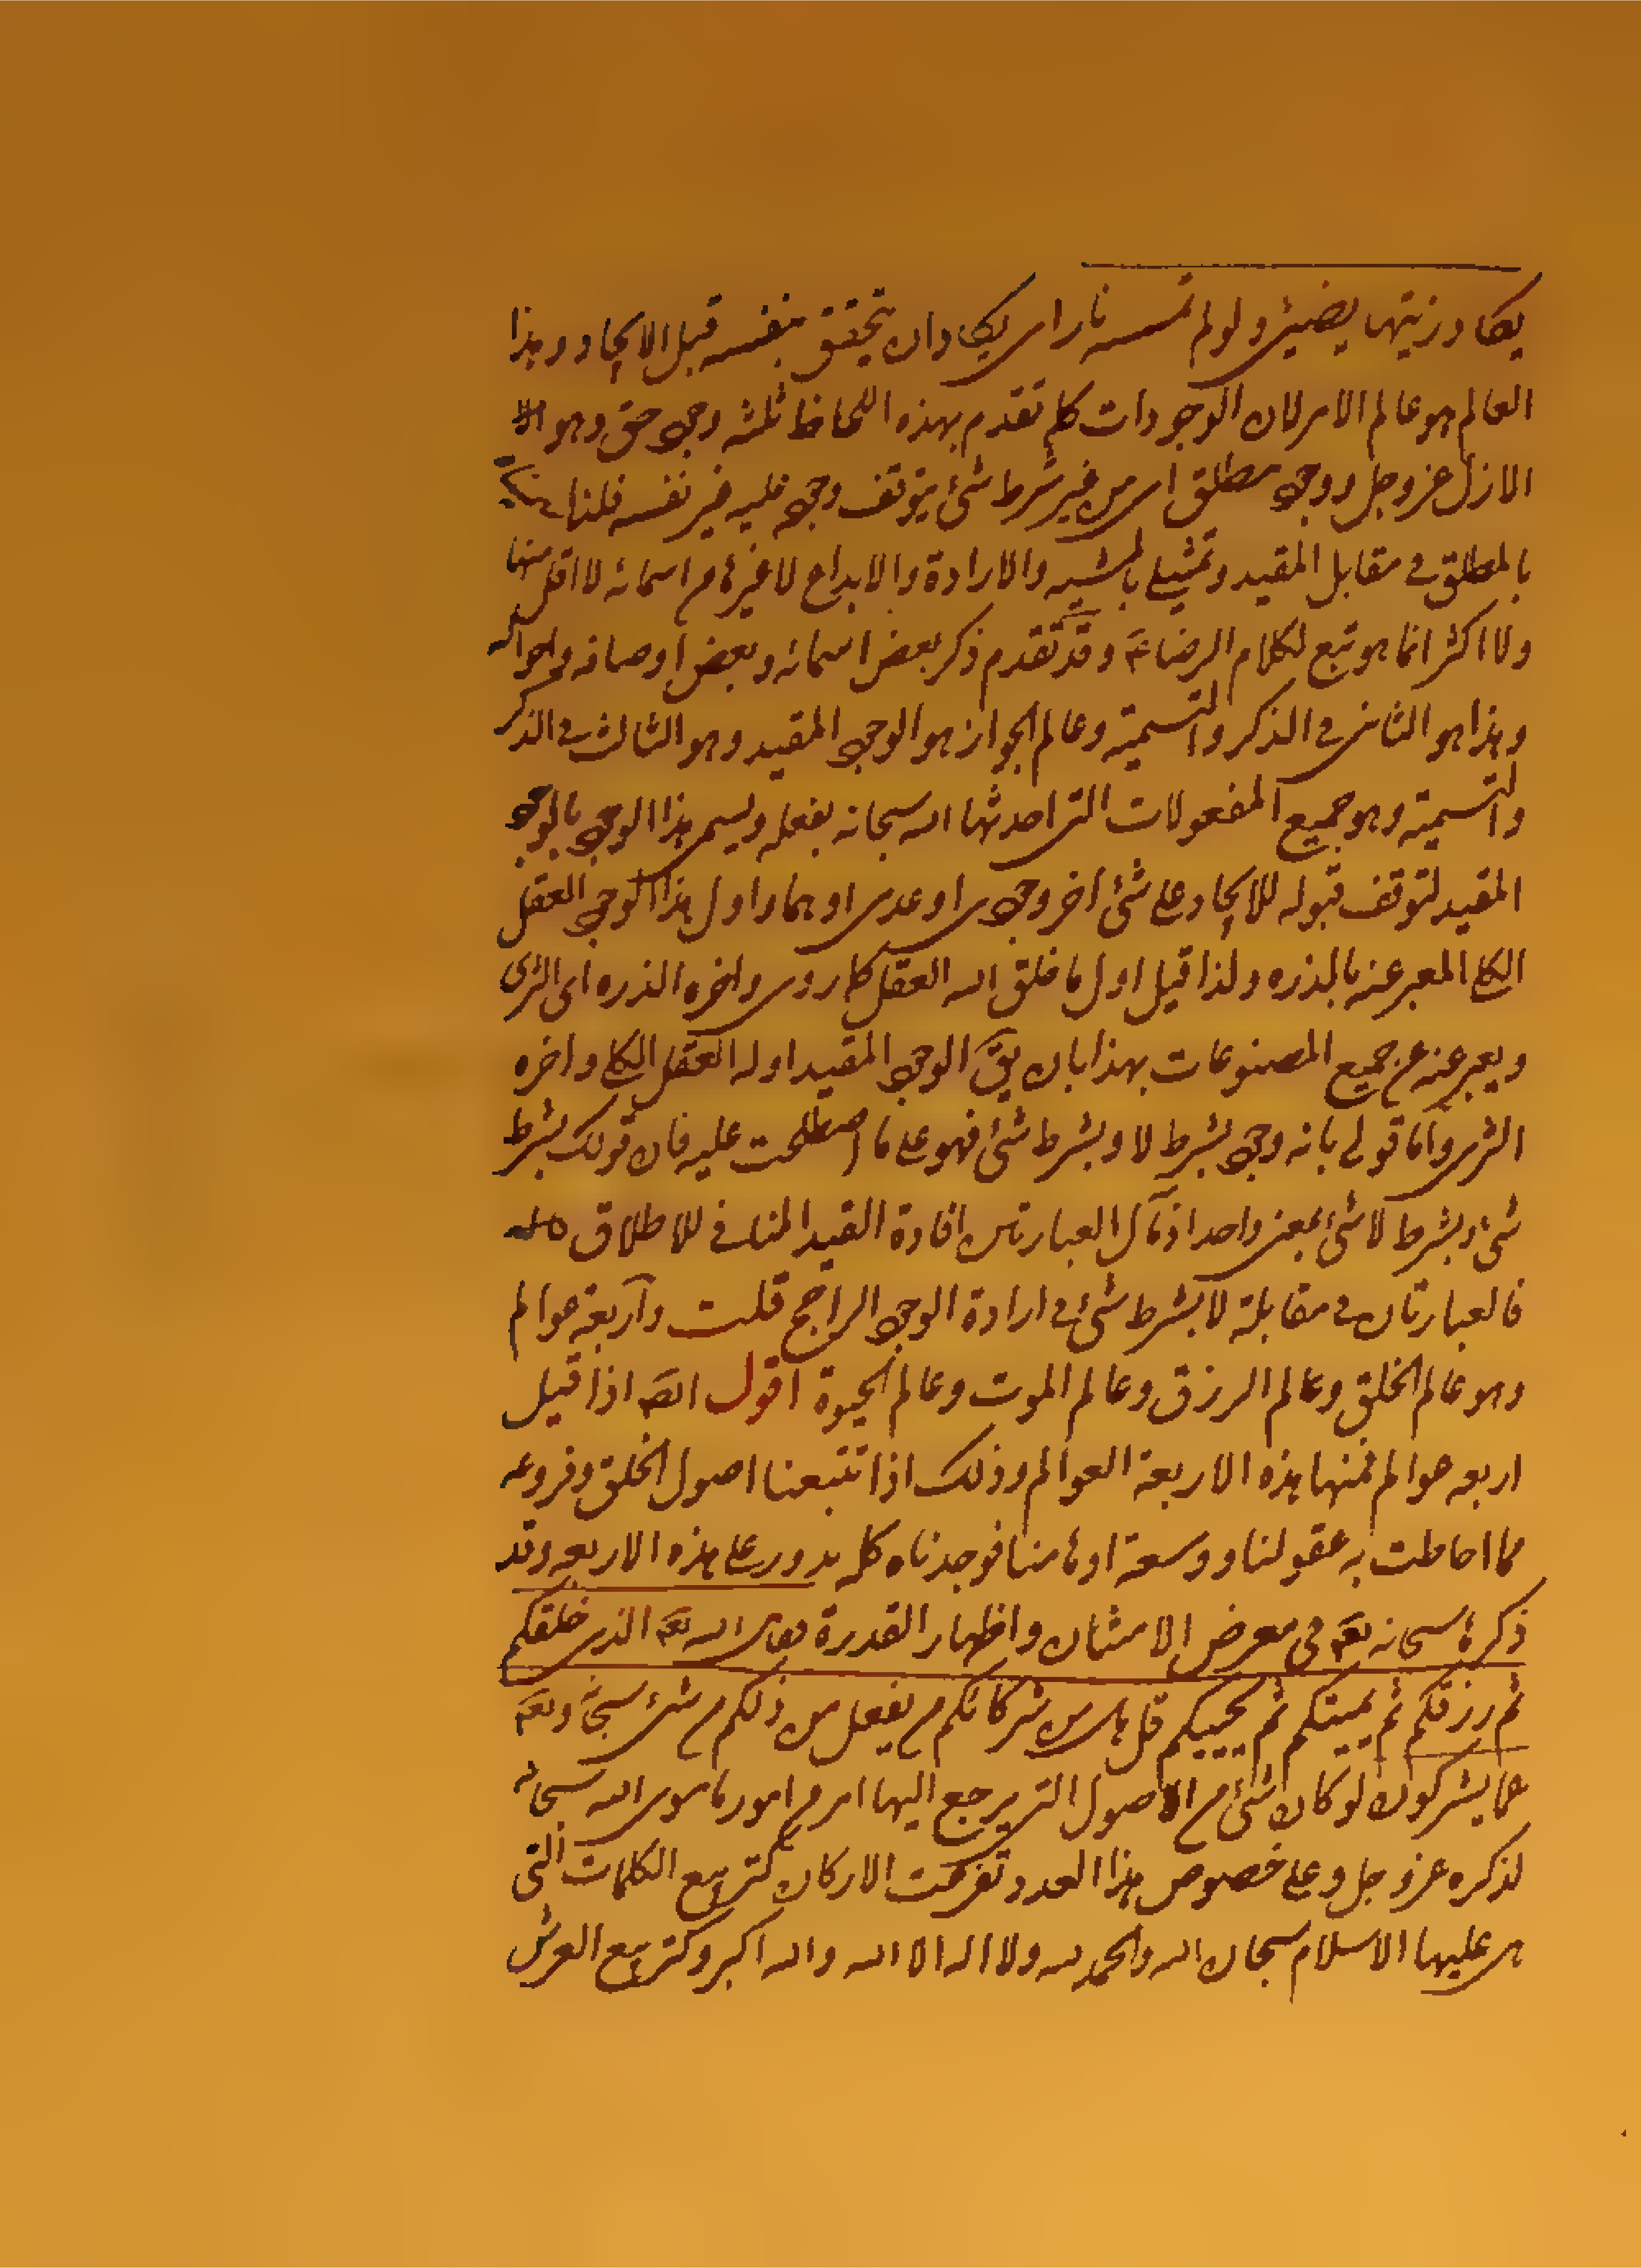 يكاد زيتها يضيئ ولو لم تمسسه نار اى يكاد ان يتحقق بنفسه قبل الايجاد وهذا
العالم هو عالم الامر لان الوجودات كلم تقدم بهذه اللحاظ ثلثه وجو حق وهو الله
الازل عز وجل ووجو مطلق اى من غير شرط شئ يتوقف وجو عليه غير نفسه فلنا
بالمطلق فى مقابل المقيد وتمثيلى بالمشيه والارادة والابداع لا غيرها من اسمائه لا اقل منها
ولا اكثر انما هو تبع لكلام الرضا ع وقد تقدم ذكر بعض اسمائه وبعض اوصافه واحواله
وهذا هو الثانى فى الذكر والتسمية وعالم الجواز هو الوجو المقيد وهو الثالث فى الذكر
والتسمية وهو جميع المفعولات التى احدثها الله سبحانه بفعله ويسمى هذا الوجو بالوجو
المقيد لتوقف قبوله للايجاد على شئ اخر وجوى او عدمى او هما واول هذا الوجو العقل
الكلى المعبر عنه بالدره ولذا قيل اول ما خلق الله العقل كما روى واخره الذره اى الثرى
ويعبر عنه عن جميع المصنوعات بهذا بان يق الوجو المقيد اوله العقل الكلى واخره
الثرى واما قولى بانه وجو بشرط لا وبشرط شئ فهو على ما اصطلحت عليه فان قولك بشرط
شئ وبشرط لا شئ بمعنى واحد اذ مآل العبارتين افادة القيد المنافى للاطلاق
فالعبارتان فى مقابلة لا بشرط شئ فى ارادة الوجو الراجح قلت واربعة عوالم
وهو عالم الخلق وعالم الرزق وعالم الموت وعالم الحيوة اقول انه اذا قيل
اربعه عوالم فمنها هذه الاربعة العوالم وذلك اذا تتبعنا اصول الخلق وفروعه
مما احاطت به عقولنا ووسعة اوهامنا فوجدناه كله يدور على هذه الاربعه وقد
ذكرها سبحانه تع فى معرض الامتنان واظهار القدرة فقال الله تع الذى خلقكم
ثم رزقكم ثم يميتكم ثم يحييكم قل هل من شركائكم من يفعل من ذلكم من شئ سبحانه وتع
عما يشركون لو كان شئ من الاصول التى يرجع اليها امر من امور ما سوى الله سبحانه
لذكره عز وجل وعلى خصوص هذا العدد تفرعت الاركان كتربيع الكلمات التى
بنى عليها الاسلام سبحان الله والحمد لله ولا اله الا الله والله اكبر وكتربيع العرش